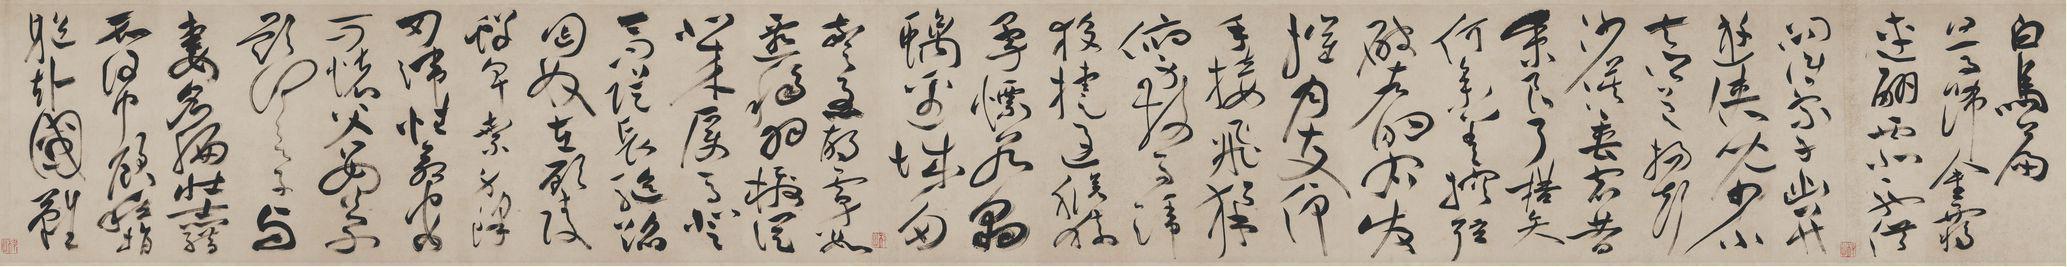 白馬篇
白馬飾金羈
連翩西北馳借
問誰家子幽并
遊俠兒少小
去鄉邑揚聲
沙漠垂宿昔
秉良弓楛矢
何參差控弦
破左的右發
摧月支仰
手接飛猱
俯身散馬蹄
狡捷過猴猿
勇剽若豹
螭邊城多
警急胡虜數
遷移羽檄從
北來厲馬登
高堤長驅蹈
匈奴左顧陵
鮮卑棄身鋒
刃端性命安
可懷父母且不
顧何言子與
妻名編壯士籍
不得中顧私捐
軀赴國難